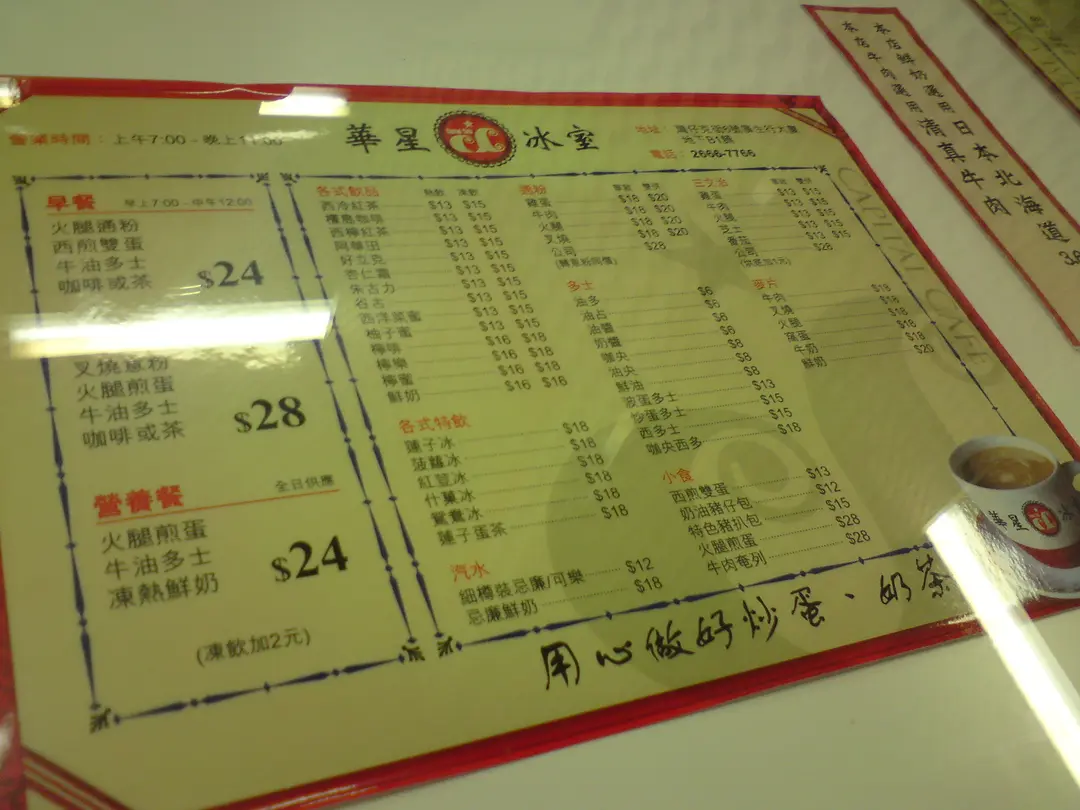 營業時間：上午7:00 - 晚上11:00
華星冰室
地址：灣仔克街6號廣生行大廈
地下B1舖
電話：2666-7766
早餐 早上7:00 - 中午12:00
火腿通粉
西煎雙蛋
牛油多士
咖啡或茶
$24
叉燒意粉
火腿煎蛋
牛油多士
咖啡或茶
$28
營養餐 全日供應
火腿煎蛋
牛油多士
凍熱鮮奶
$24
(凍飲加2元)
各式飲品 熱飲 凍飲
西冷紅茶 $13 $15
咖啡 $13 $15
西檸紅茶 $13 $15
阿華田 $13 $15
好立克 $13 $15
杏仁霜 $13 $15
朱古力 $13 $15
谷古 $13 $15
西洋菜蜜 $13 $15
柚子蜜 $13 $15
檸啡 $16 $18
檸樂 $16 $18
檸蜜 $16 $18
鮮奶
各式特飲
蓮子冰 $18
菠蘿冰 $18
紅荳冰 $18
什菓冰 $18
鴛鴦冰 $18
蓮子蛋茶 $18
汽水
細樽裝忌廉/可樂 $12
忌廉鮮奶 $18
通粉 單餸 雙餸
雞蛋 $18 $20
牛肉 $18 $20
火腿 $18 $20
叉燒 $18 $20
公司 $28
多士
油多 $6
油占 $6
油醬 $6
奶醬 $6
咖央 $8
油央 $8
鮮油 $8
波蛋多士 $13
炒蛋多士 $15
西多士 $15
咖央西多 $18
小食
西煎雙蛋 $13
奶油豬仔包 $12
特色豬扒包 $15
火腿煎蛋 $28
牛肉奄列 $28
三文治 單餸 雙餸
雞蛋 $13 $15
牛肉 $13 $15
火腿 $13 $15
芝士 $13 $15
番茄 $13 $15
公司 $28
(烘底加1元)
麥片
牛肉 $18
叉燒 $18
火腿 $18
窩蛋 $18
牛奶 $18
鮮奶 $20
CAPITAL CAFE
用心做好炒蛋、奶茶
華星冰
本店鮮奶選用日本北海道3.6
本店牛肉選用清真牛肉